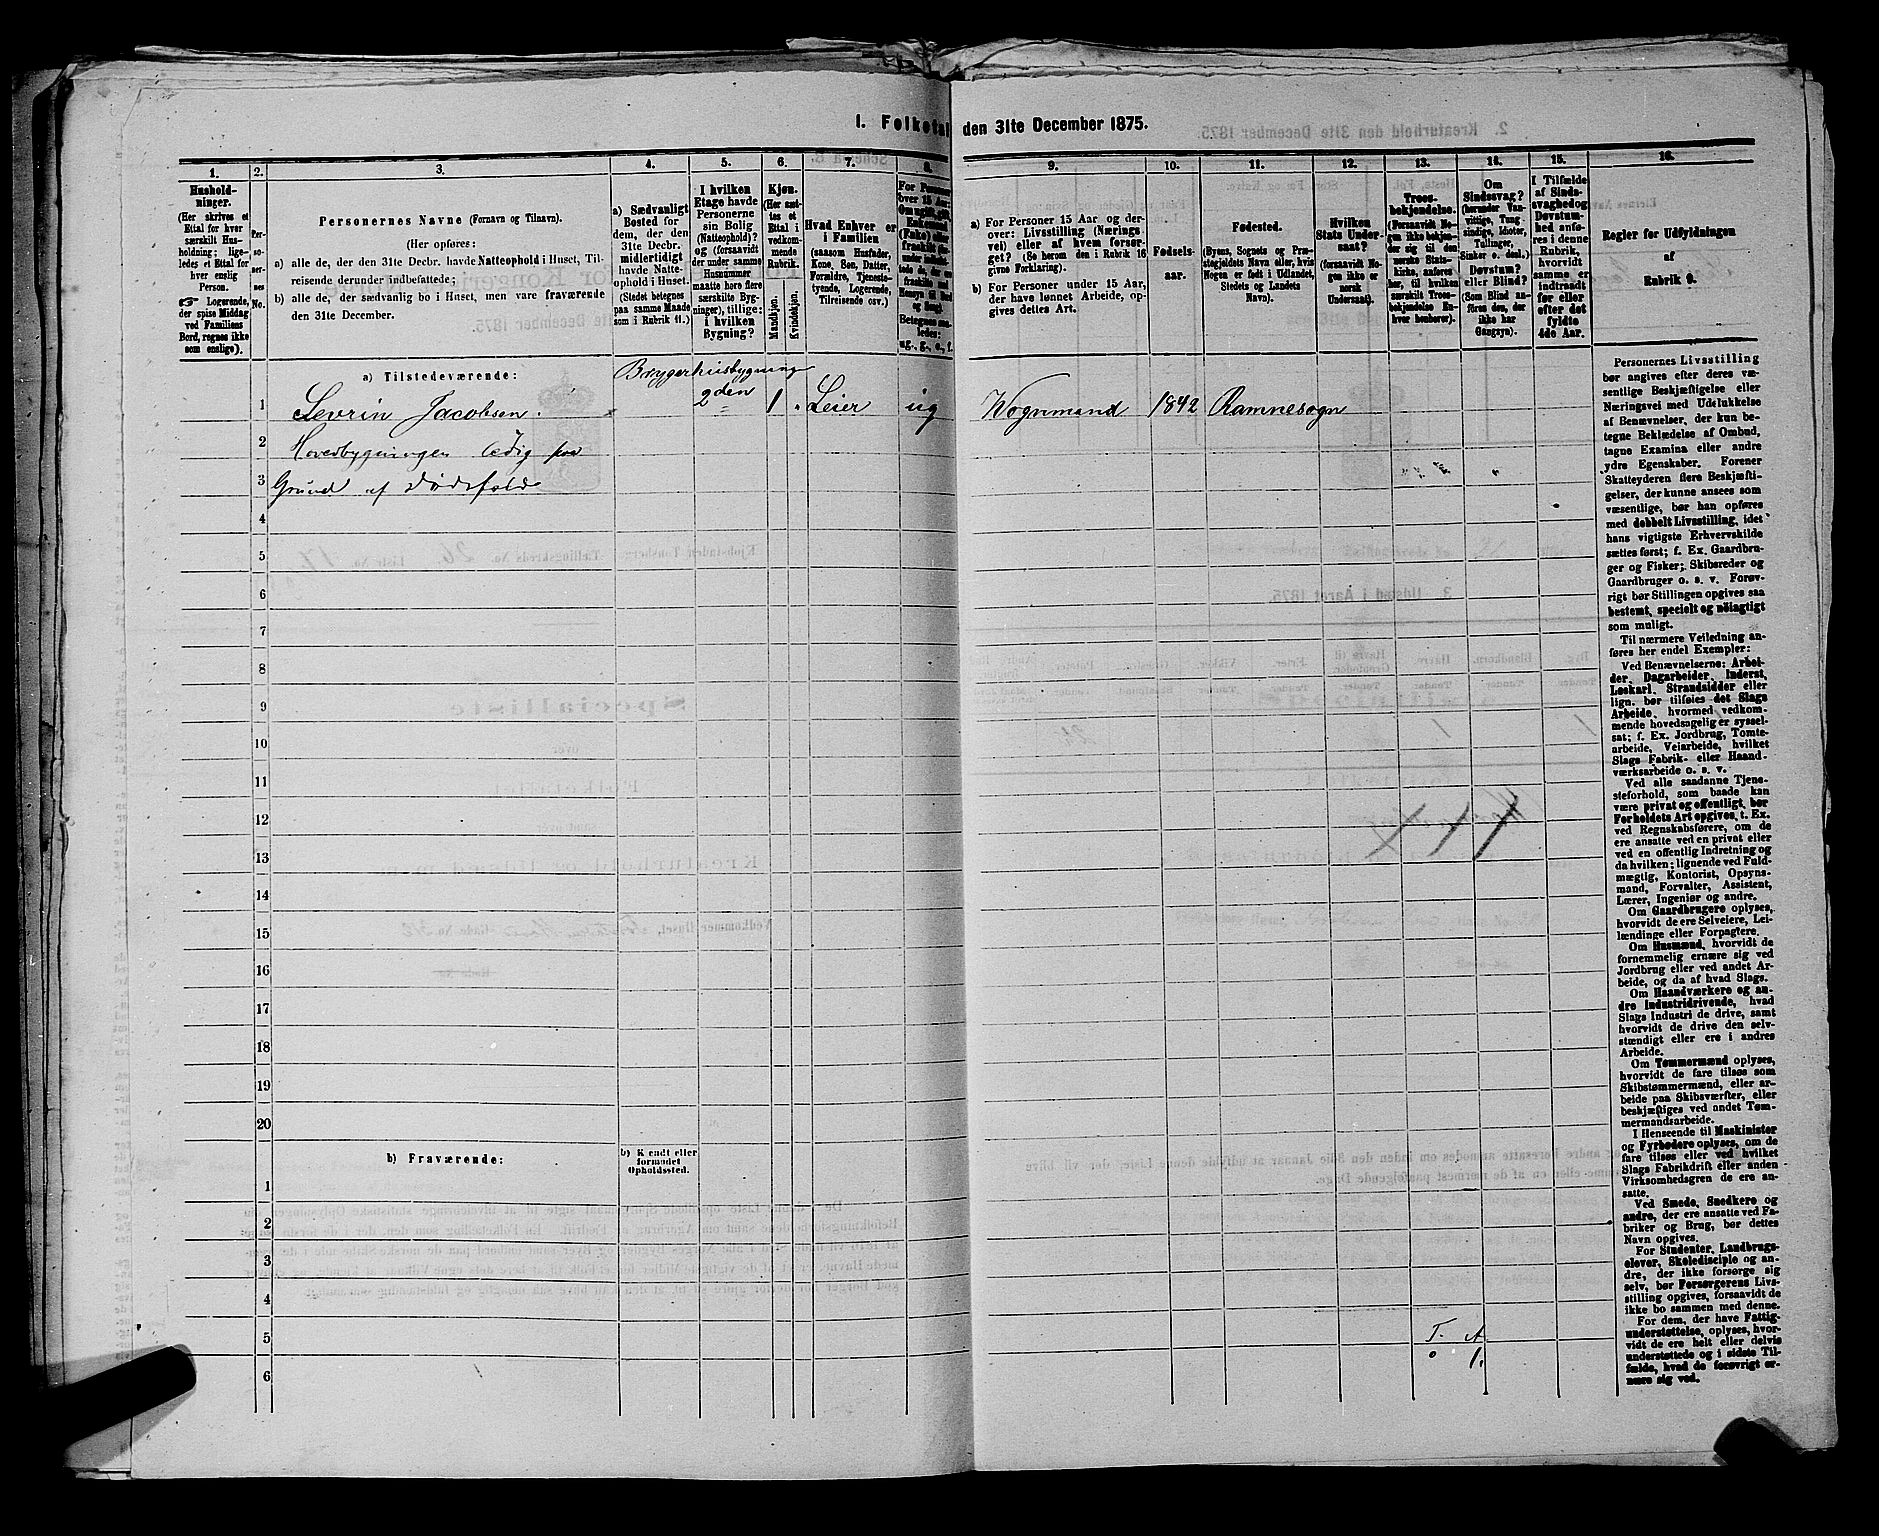 1. Folketal den 31te December 1875.
1.
Hushold-
ninger.
(Her skrives et
Ettal for hver
særskilt Hus-
holdning; lige-
ledes et Ettal for
hver enslig
Person.
☞ Logerende,
der spise Middag
ved Familiens
Bord, regnes ikke
som enslige).
2.
Per-
so-
ner-
nes
No.
3.
Personernes Navne (Fornavn og Tilnavn).
(Her opføres:
a) alle de, der den 31te Decbr. havde Natteophold i Huset, Til-
reisende derunder indbefattede;
b) alle de, der sædvanlig bo i Huset, men vare fraværende
den 31te December.
4.
a) Sædvanligt
Bosted for
dem, der den
31te Decbr.
midlertidigt
havde Natte-
ophold i Huset.
(Stedet betegnes
paa samme Maade
som i Rubrik 11.)
5.
I hvilken
Etage havde
Personerne
sin Bolig
(Natteophold)?
og (forsaavidt
der under samme
Husnummer
maatte høre flere
særskilte Byg-
ninger), tillige:
i hvilken
Bygning?
6.
Kjøn.
(Her sæt-
tes et
Ettal i
vedkom-
mende
Rubrik.
Mandkjøn.
Kvindekjøn.
7.
Hvad Enhver er
i Familien
(saasom Husfader,
Kone, Søn, Datter,
Forældre, Tjeneste-
tyende, Logerende,
Tilreisende osv.)
8.
For Personer
over 15 Aar:
9.
a) For Personer 15 Aar og der-
over: Livsstilling (Nærings-
vei) eller af hvem forsør-
get? (Se herom den i Rubrik 16
givne Forklaring).
b) For Personer under 15 Aar,
der have lønnet Arbeide, op-
gives dettes Art.
10.
Fødsels-
aar.
11.
Fødested.
(Byens, Sognets og Præ-
stegjeldets Navn eller, hvis
Nogen er født i Udlandet,
Stedets og Landets
Navn).
12.
Hvilken
Stats Under-
saat?
(forsaavidt No-
gen ikke er
norsk
Undersaat).
13.
Troes-
bekjendelse.
(Forsaavidt No-
gen ikke bekjen-
der sig til den
norske Stats-
kirke, anføres
her, til hvilken
særskilt Troes-
bekjendelse En-
hver henhører).
14.
Om
Sindssvag?
(herunder Van-
vittige, Tung-
sindige, Idioter,
Tullinger,
Sinker o. desl.).
Døvstum?
eller Blind?
(Som Blind an-
føres den, der
ikke har
Gangsyn).
15.
I Tilfælde
af Sinds-
svaghed og
Døvstum-
hed anfø-
res i denne
Rubrik,
hvorvidt
samme er
indtraadt
før eller
efter det
fyldte
4de Aar.
16.
Regler for Udfyldningen
af
Rubrik 9.
a) Tilstedeværende:
Bryggerhusbygning
1 Sevrin Jacobsen. 2den 1 " Leier ug Vognmand 1842 Ramnesogn
2 Hovedbygningen ledig paa
3 Grund af Dødsfald
4
5
6
7
8
9
10
11
12
13
14
15
16
17
18
19
20
b) Fraværende:
b) Kendt eller
formodet
Opholdssted.
1
2
3
4
5
6
T. A
0 1.
Personernes Livsstilling
bør angives efter deres væ-
sentlige Beskjæftigelse eller
Næringsvei med Udelukkelse
af Benævnelser, der kun be-
tegne Beklædelse af Ombud,
tagne Examina eller andre
ydre Egenskaber. Forener
Skatteyderen flere Beskjæfti-
gelser, der kunne ansees som
væsentlige, bør han opføres
med dobbelt Livsstilling, idet
hans vigtigste Erhvervskilde
sættes først; f. Ex. Gaardbru-
ger og Fisker; Skibsreder og
Gaardbruger o. s. v. Forøv-
rigt bør Stillingen opgives saa
bestemt, specielt og nøiagtigt
som muligt.
Til nærmere Veiledning an-
føres her endel Exempler:
Ved Benævnelserne: Arbei-
der, Dagarbeider, Inderst,
Løskarl, Strandsidder eller
lign. bør tilføies det Slags
Arbeide, hvormed vedkom-
mende hovedsagelig er syssel-
sat; f. Ex. Jordbrug, Tomte-
arbeide, Veiarbeide, hvilket
Slags Fabrik- eller Haand-
værksarbeide o. s. v.
Ved alle saadanne Tjene-
steforhold, som baade kan
være privat og offentligt, bør
Forholdets Art opgives, t. Ex.
ved Regnskabsførere, om de
ere ansatte ved en privat eller
ved en offentlig Indretning og
da hvilken; lignende ved Fuld-
mægtig, Kontorist, Opsyns-
mand, Forvalter, Assistent,
Lærer, Ingeniør og andre.
Om Gaardbrugere oplyses,
hvorvidt de ere Selveiere, Lei-
lændinge eller Forpagtere.
Om Husmænd, hvorvidt de
fornemmelig ernære sig ved
Jordbrug eller ved andet Ar-
beide, og da af hvad Slags.
Om Haandværkere og an-
dre Industridrivende, hvad
Slags Industri de drive, samt
hvorvidt de drive den selv-
stændigt eller ere i andres
Arbeide.
Om Tømmermænd oplyses,
hvorvidt de fare tilsøs som
Skibstømmermænd, eller ar-
beide paa Skibsværfter, eller
beskjæftiges ved andet Tøm-
mermandsarbeide.
I Henseende til Maskinister
og Fyrbødere oplyses, om de
fare tilsøs eller ved hvilket
Slags Fabrikdrift eller anden
Virksomhedsgren de ere an-
satte.
Ved Smede, Snedkere og
andre, der ere ansatte ved Fa-
briker og Brug, bør dettes
Navn opgives.
For Studenter, Landbrugs-
elever, Skoledisciple og an-
dre, der ikke forsørge sig
selv, bør Forsørgerens Livs-
stilling opgives, forsaavidt de
ikke bo sammen med denne.
For dem, der have Fattig-
understøttelse, oplyses, hvor-
vidt de ere helt eller delvis
understøttede og i sidste Til-
fælde, hvad de forøvrigt er-
nære sig ved.